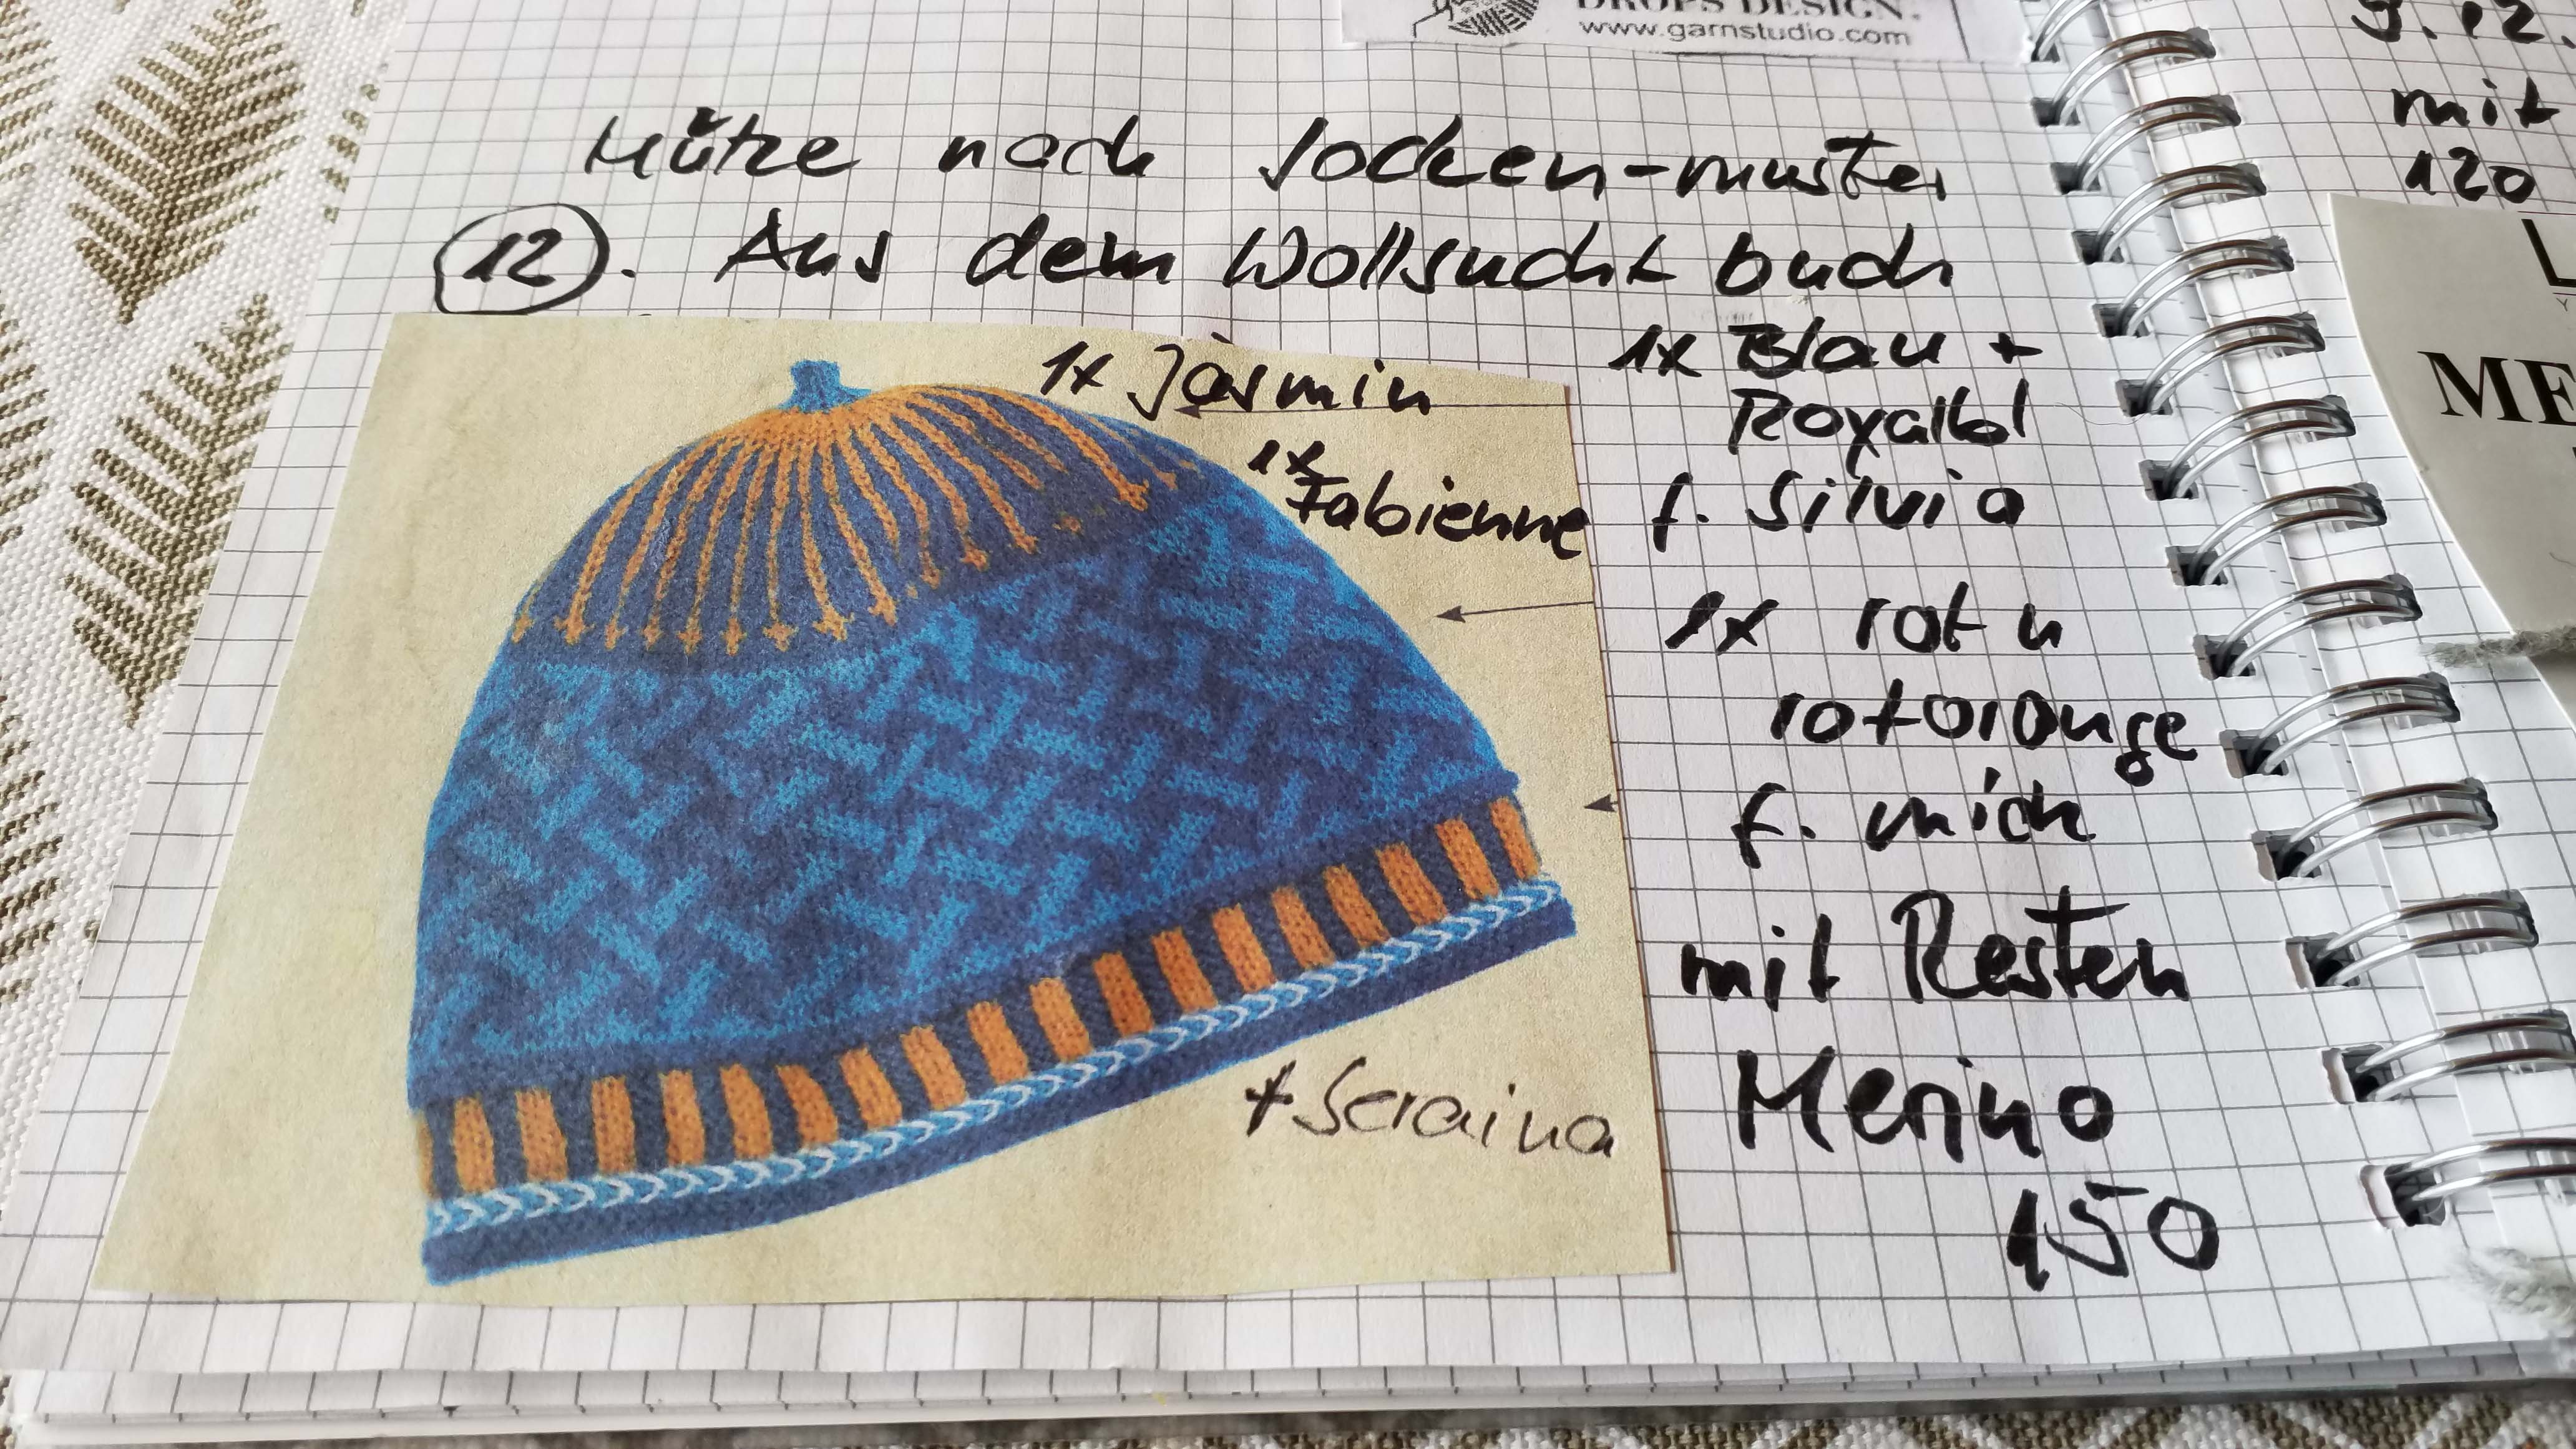 DROPS DESIGN.
www.garnstudio.com
Mütze nach Socken-muster
12. Aus dem Wollsucht buch
1x Jasmin
1x
Fabienne
+ Seraina
1x Blau +
Royalbl
f. Silvia
1x rot u
rotorange
f. mich
mit Resten
Merino
150
9.12.
mit
120
ME